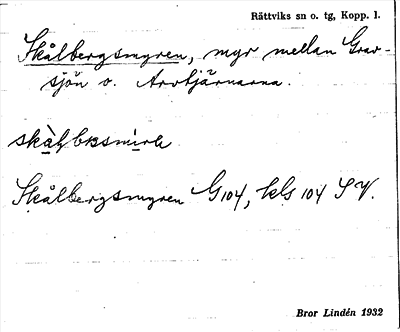 Rättviks sn o. tg, Kopp. l.
Skålbergsmyren, myr mellan Grav-
sjön o. Arvtjärnarna.
Skålbergsmyren G 104, kls 104 SV.
Bror Lindén 1932